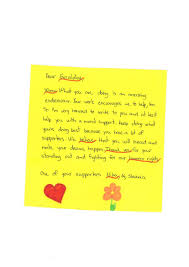 Dear
What you are doing is an amazing
endeavour. Your work encourages us to help, too.
So I'm very honoured to write to you and at least
help you with a moral support. Keep doing what
you're doing best because you have a lot of
supporters. We believe that you will succeed and
make your dreams happen. Thank you for
standing out and fighting for our human rights.
One of your supporters